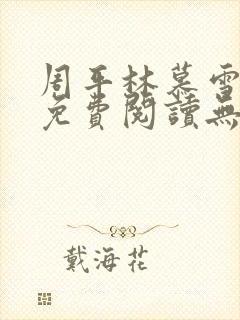 周平林慕雪
免費閱讀無
戴海花